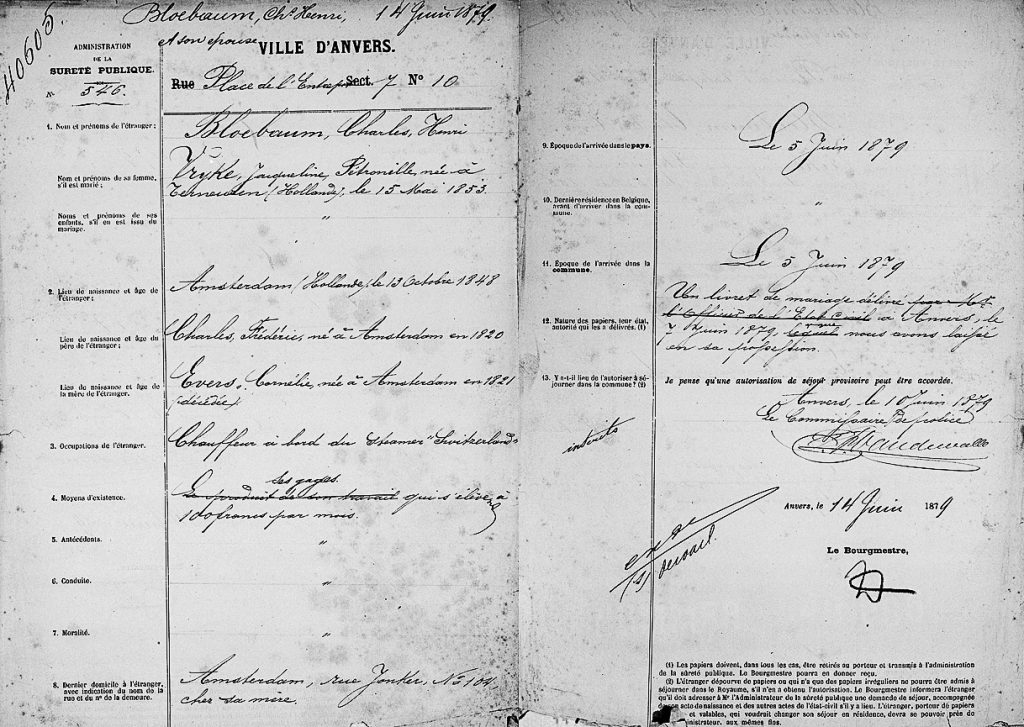 40605
Bloebaum, Chs Henri, 14 Juin 1879
et son épouse
ADMINISTRATION
DE LA
SURETÉ PUBLIQUE.
N° 546.
VILLE D'ANVERS.
Rue Place de l'Entrepôt Sect. 7 N° 10
1. Nom et prénoms de l'étranger;
Bloebaum, Charles, Henri
Nom et prénoms de sa femme,
s'il est marié;
Vryke, Jacqueline, Pétronille, née à
Terneuzen (Hollande), le 15 Mai 1853.
Noms et prénoms de ses
enfants, s'il en est issu du
mariage.
"
2. Lieu de naissance et âge de
l'étranger;
Amsterdam (Hollande), le 13 Octobre 1848
Lieu de naissance et âge du
père de l'étranger;
Charles, Frédéric, né à Amsterdam en 1820
Lieu de naissance et âge de
la mère de l'étranger.
Evers, Cornélie, née à Amsterdam en 1821
(décédée)
3. Occupations de l'étranger.
Chauffeur à bord du steamer "Switzerland"
4. Moyens d'existence.
ses gages.
Le produit de son travail qui s'élève à
100 francs par mois.
5. Antécédents.
"
6. Conduite.
"
7. Moralité.
"
8. Dernier domicile à l'étranger,
avec indication du nom de la
rue et du n° de la demeure.
Amsterdam, rue Jonker, N° 104,
chez sa mère
9. Époque de l'arrivée dans le pays.
Le 5 Juin 1879
10. Dernière résidence en Belgique,
avant d'arriver dans la com-
mune.
"
11. Époque de l'arrivée dans la
commune.
Le 5 Juin 1879
12. Nature des papiers, leur état,
autorité qui les a délivrés. (1)
Un livret de mariage délivré par Mr
l'Officier de l'Etat Civil à Anvers, le
7 Juin 1879, lequel nous avons laissé
en sa possession.
13. Y a-t-il lieu de l'autoriser à sé-
journer dans la commune? (2)
Je pense qu'une autorisation de séjour provisoire peut être accordée.
Anvers, le 10 Juin 1879
Le Commissaire de police
Vandewalle
Anvers, le 14 Juin 1879
Le Bourgmestre,
(1) Les papiers doivent, dans tous les cas, être retirés au porteur et transmis à l'administration
de la sûreté publique. Le Bourgmestre pourra en donner reçu.
(2) L'étranger dépourvu de papiers ou qui n'a que des papiers irréguliers ne pourra être admis à
séjourner dans le Royaume, s'il n'en a obtenu l'autorisation. Le Bourgmestre informera l'étranger
qu'il doit adresser à Mr l'Administrateur de la sûreté publique une demande de séjour, accompagnée
de son acte de naissance et des autres actes de l'état-civil s'il y a lieu. L'étranger, porteur de papiers
et valables, qui voudrait changer son séjour en résidence, devra se pouvoir près de
ministrateur, aux mêmes fins.